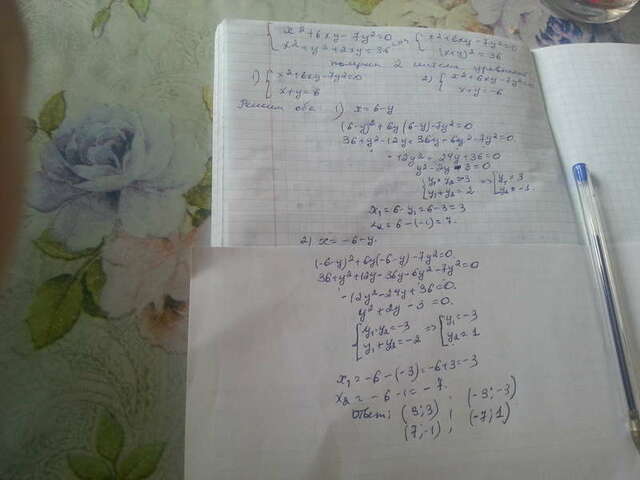 { x²+6xy-7y²=0 { x²+6xy-7y²=0
x²+y²+2xy=36 => (x+y)²=36
получили 2 системы уравнений
1) { x²+6xy-7y²=0 2) { x²+6xy-7y²=0
x+y=6 x+y=-6
Решим оба: 1) x=6-y
(6-y)²+6y(6-y)-7y²=0
36+y²-12y+36y-6y²-7y²=0
-12y²- 24y+36=0
y²-2y-3=0
{ y₁·y₂=-3 => [ y₁=3
y₁+y₂=2 y₂=-1
x₁=6-y₁=6-3=3
x₂=6-(-1)=7.
2) x=-6-y.
(-6-y)²+6y(-6-y)-7y²=0
36+y²+12y-36y-6y²-7y²=0
-12y²-24y+36=0.
y²+2y-3=0.
{ y₁·y₂=-3 => [ y₁=-3
y₁+y₂=-2 y₂=1
x₁=-6-(-3)=-6+3=-3
x₂=-6-1=-7.
Ответ: (3;3) ; (-3;-3)
(7;-1) ; (-7;1)